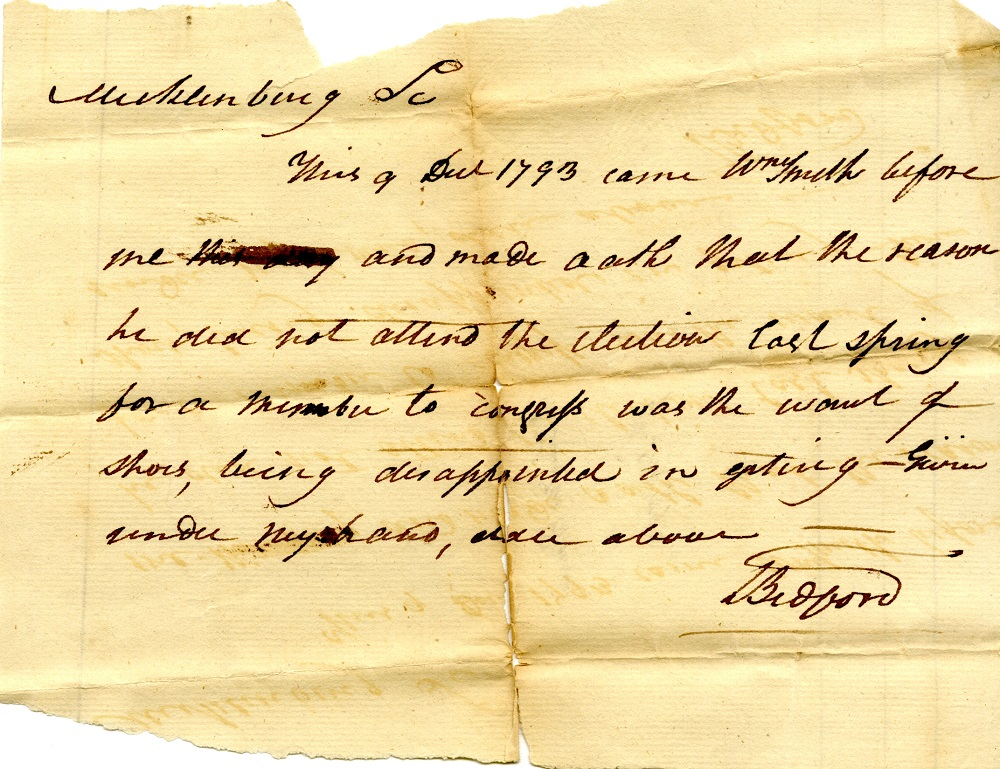 Mecklenburg Sc
This 9 Decr 1793 came Wm Smith before
me this day and made oath that the reason
he did not attend the election last spring
for a member to congress was the want of
shoes, being disappointed in geting — Given
under my hand, date above
TBedford